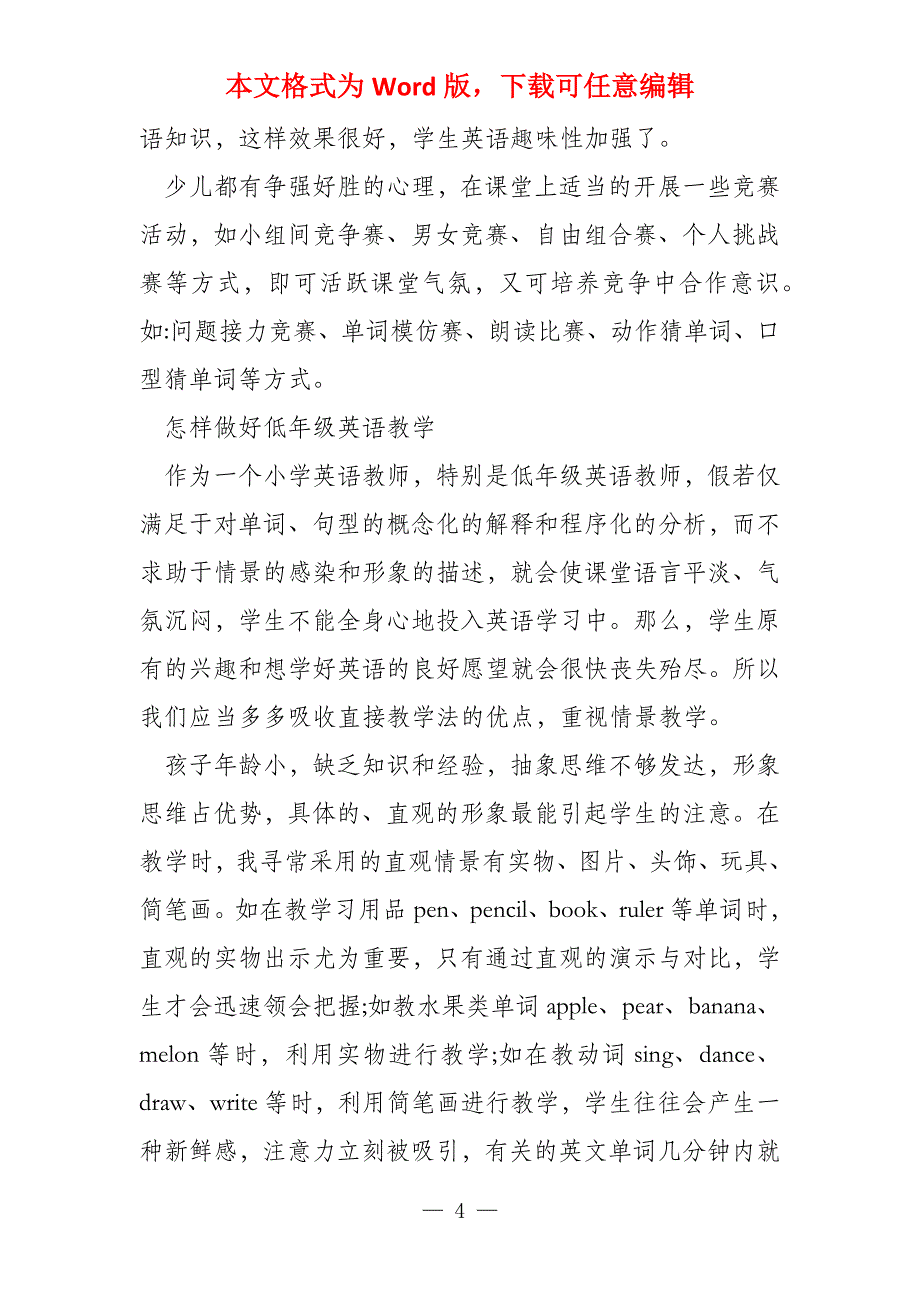 本文格式为 Word 版，下载可任意编辑
语知识，这样效果很好，学生英语趣味性加强了。
少儿都有争强好胜的心理，在课堂上适当的开展一些竞赛
活动，如小组间竞争赛、男女竞赛、自由组合赛、个人挑战
赛等方式，即可活跃课堂气氛，又可培养竞争中合作意识。
如:问题接力竞赛、单词模仿赛、朗读比赛、动作猜单词、口
型猜单词等方式。
怎样做好低年级英语教学
作为一个小学英语教师，特别是低年级英语教师，假若仅
满足于对单词、句型的概念化的解释和程序化的分析，而不
求助于情景的感染和形象的描述，就会使课堂语言平淡、气
氛沉闷，学生不能全身心地投入英语学习中。那么，学生原
有的兴趣和想学好英语的良好愿望就会很快丧失殆尽。所以
我们应当多多吸收直接教学法的优点，重视情景教学。
孩子年龄小，缺乏知识和经验，抽象思维不够发达，形象
思维占优势，具体的、直观的形象最能引起学生的注意。在
教学时，我寻常采用的直观情景有实物、图片、头饰、玩具、
简笔画。如在教学习用品 pen、pencil、book、ruler 等单词时，
直观的实物出示尤为重要，只有通过直观的演示与对比，学
生才会迅速领会把握;如教水果类单词 apple、pear、banana、
melon 等时，利用实物进行教学;如在教动词 sing、dance、
draw、write 等时，利用简笔画进行教学，学生往往会产生一
种新鲜感，注意力立刻被吸引，有关的英文单词几分钟内就
— 4 —